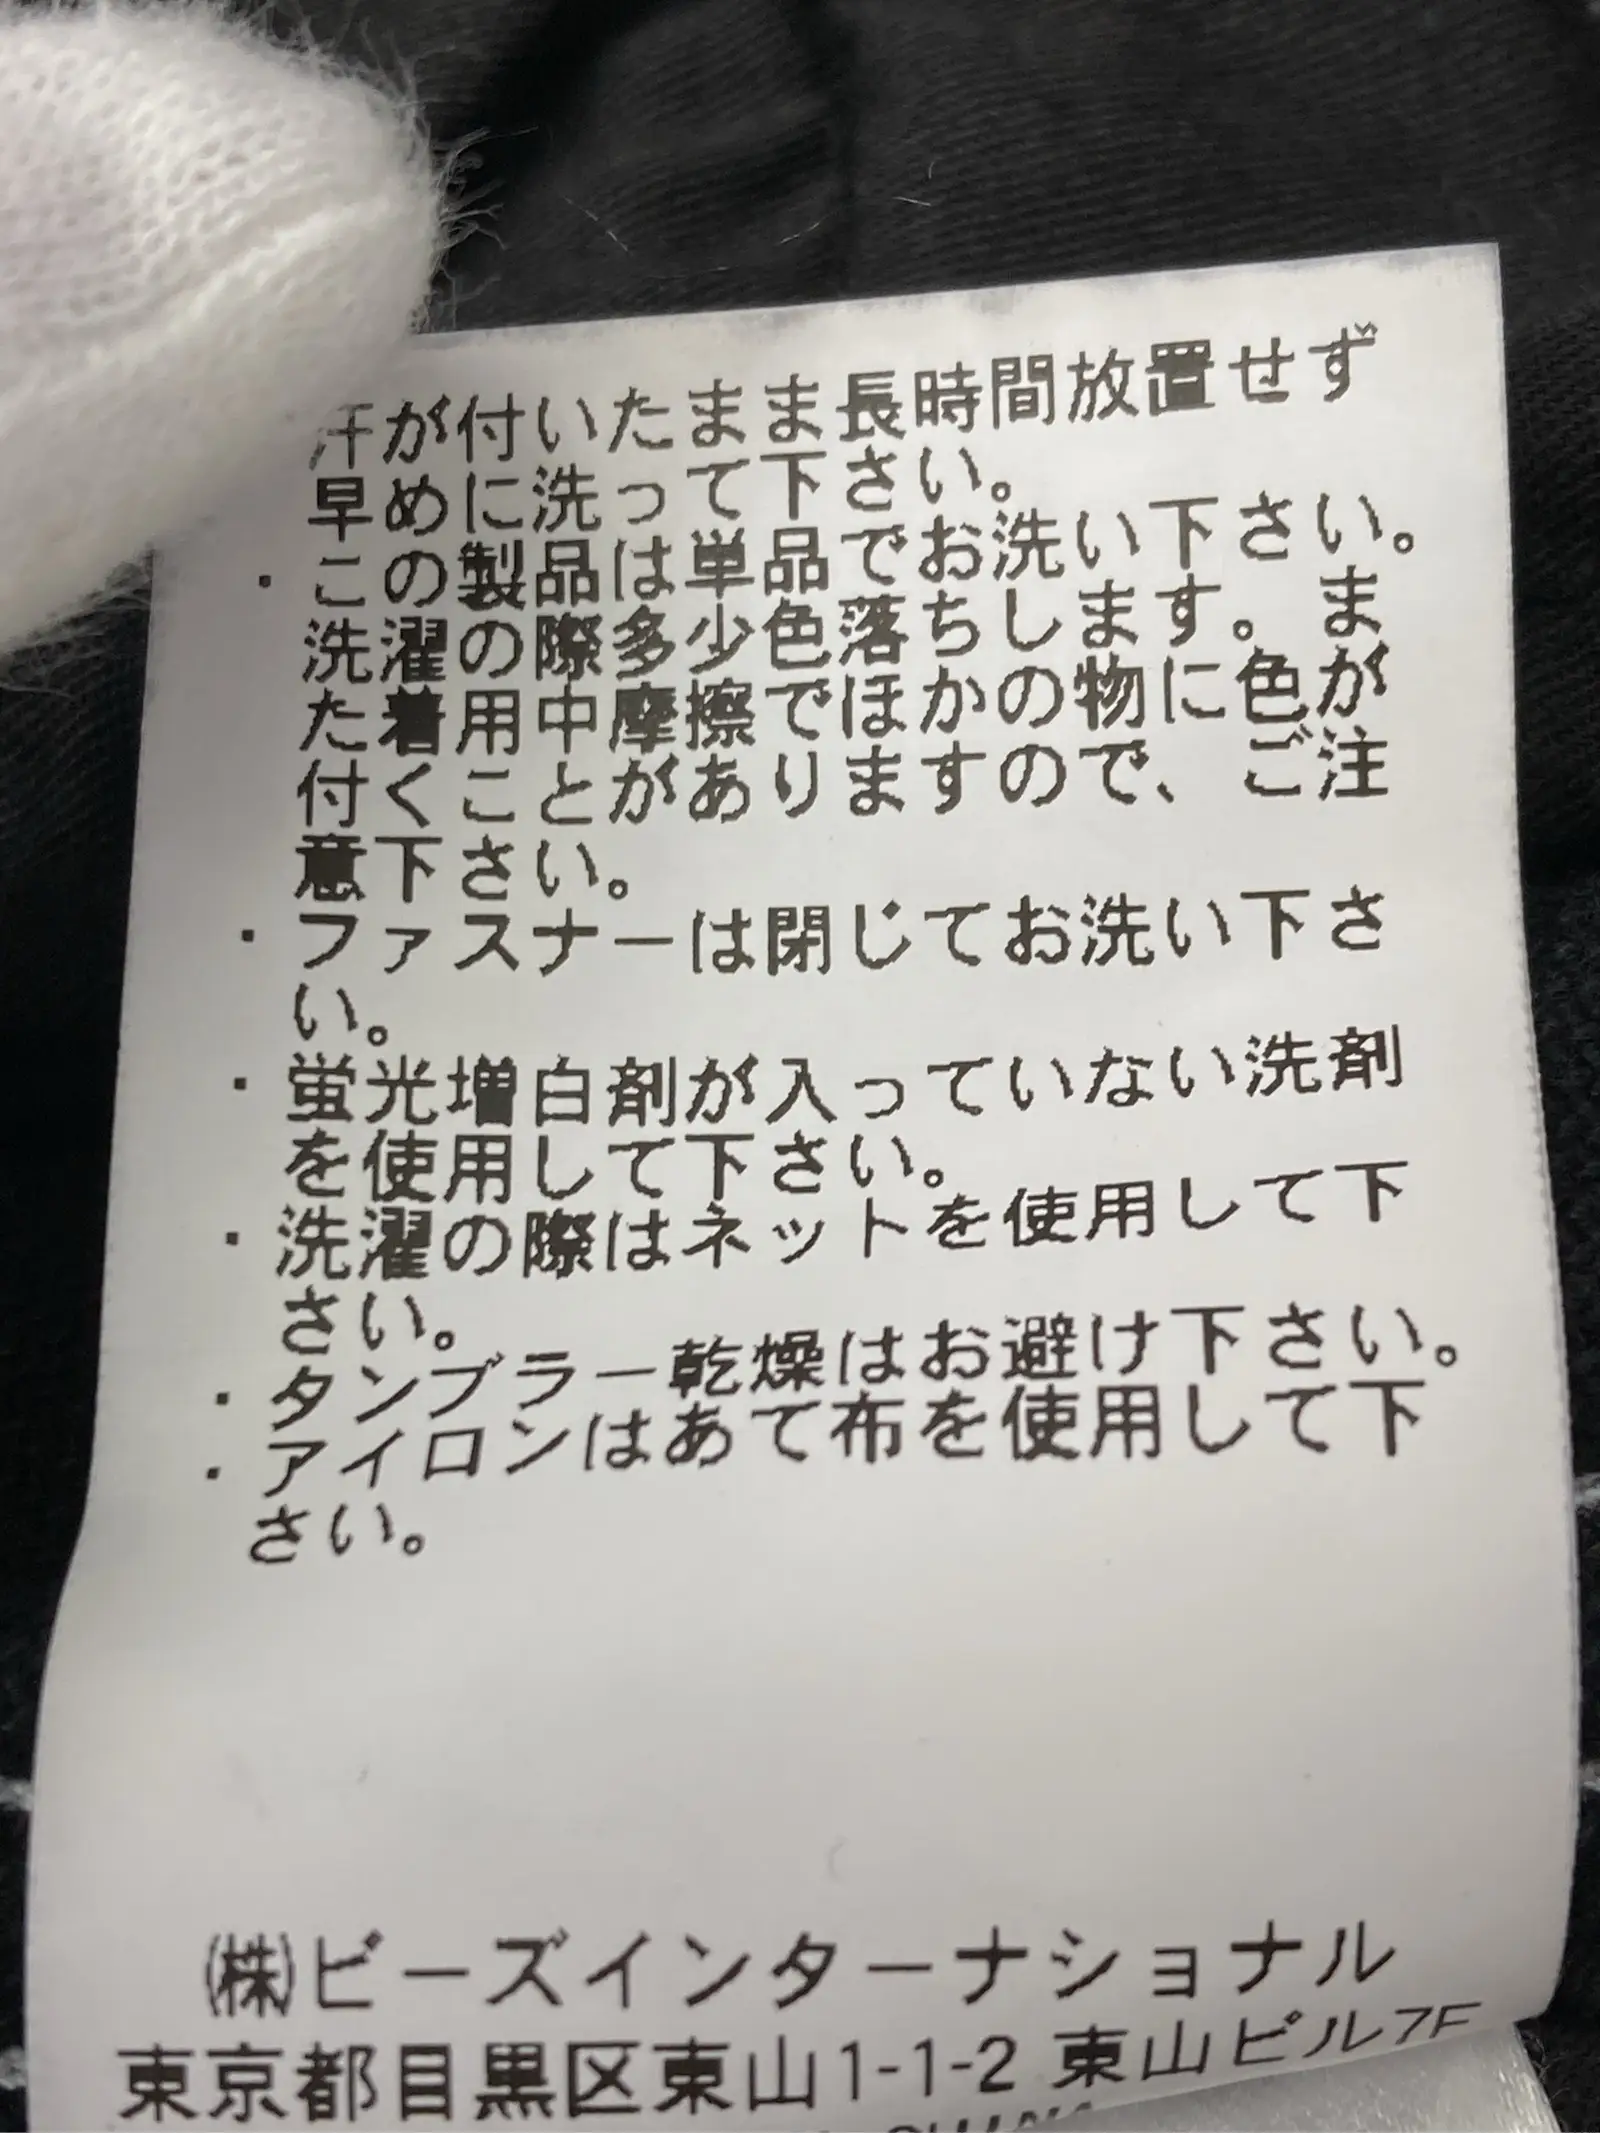 汗が付いたまま長時間放置せず
早めに洗って下さい。
・この製品は単品でお洗い下さい。
洗濯の際多少色落ちします。ま
た着用中摩擦でほかの物に色が
付くことがありますので、ご注
意下さい。
・ファスナーは閉じてお洗い下さ
い。
・蛍光増白剤が入っていない洗剤
を使用して下さい。
・洗濯の際はネットを使用して下
さい。
・タンブラー乾燥はお避け下さい。
・アイロンはあて布を使用して下
さい。
㈱ビーズインターナショナル
東京都目黒区東山1-1-2 東山ビル7F